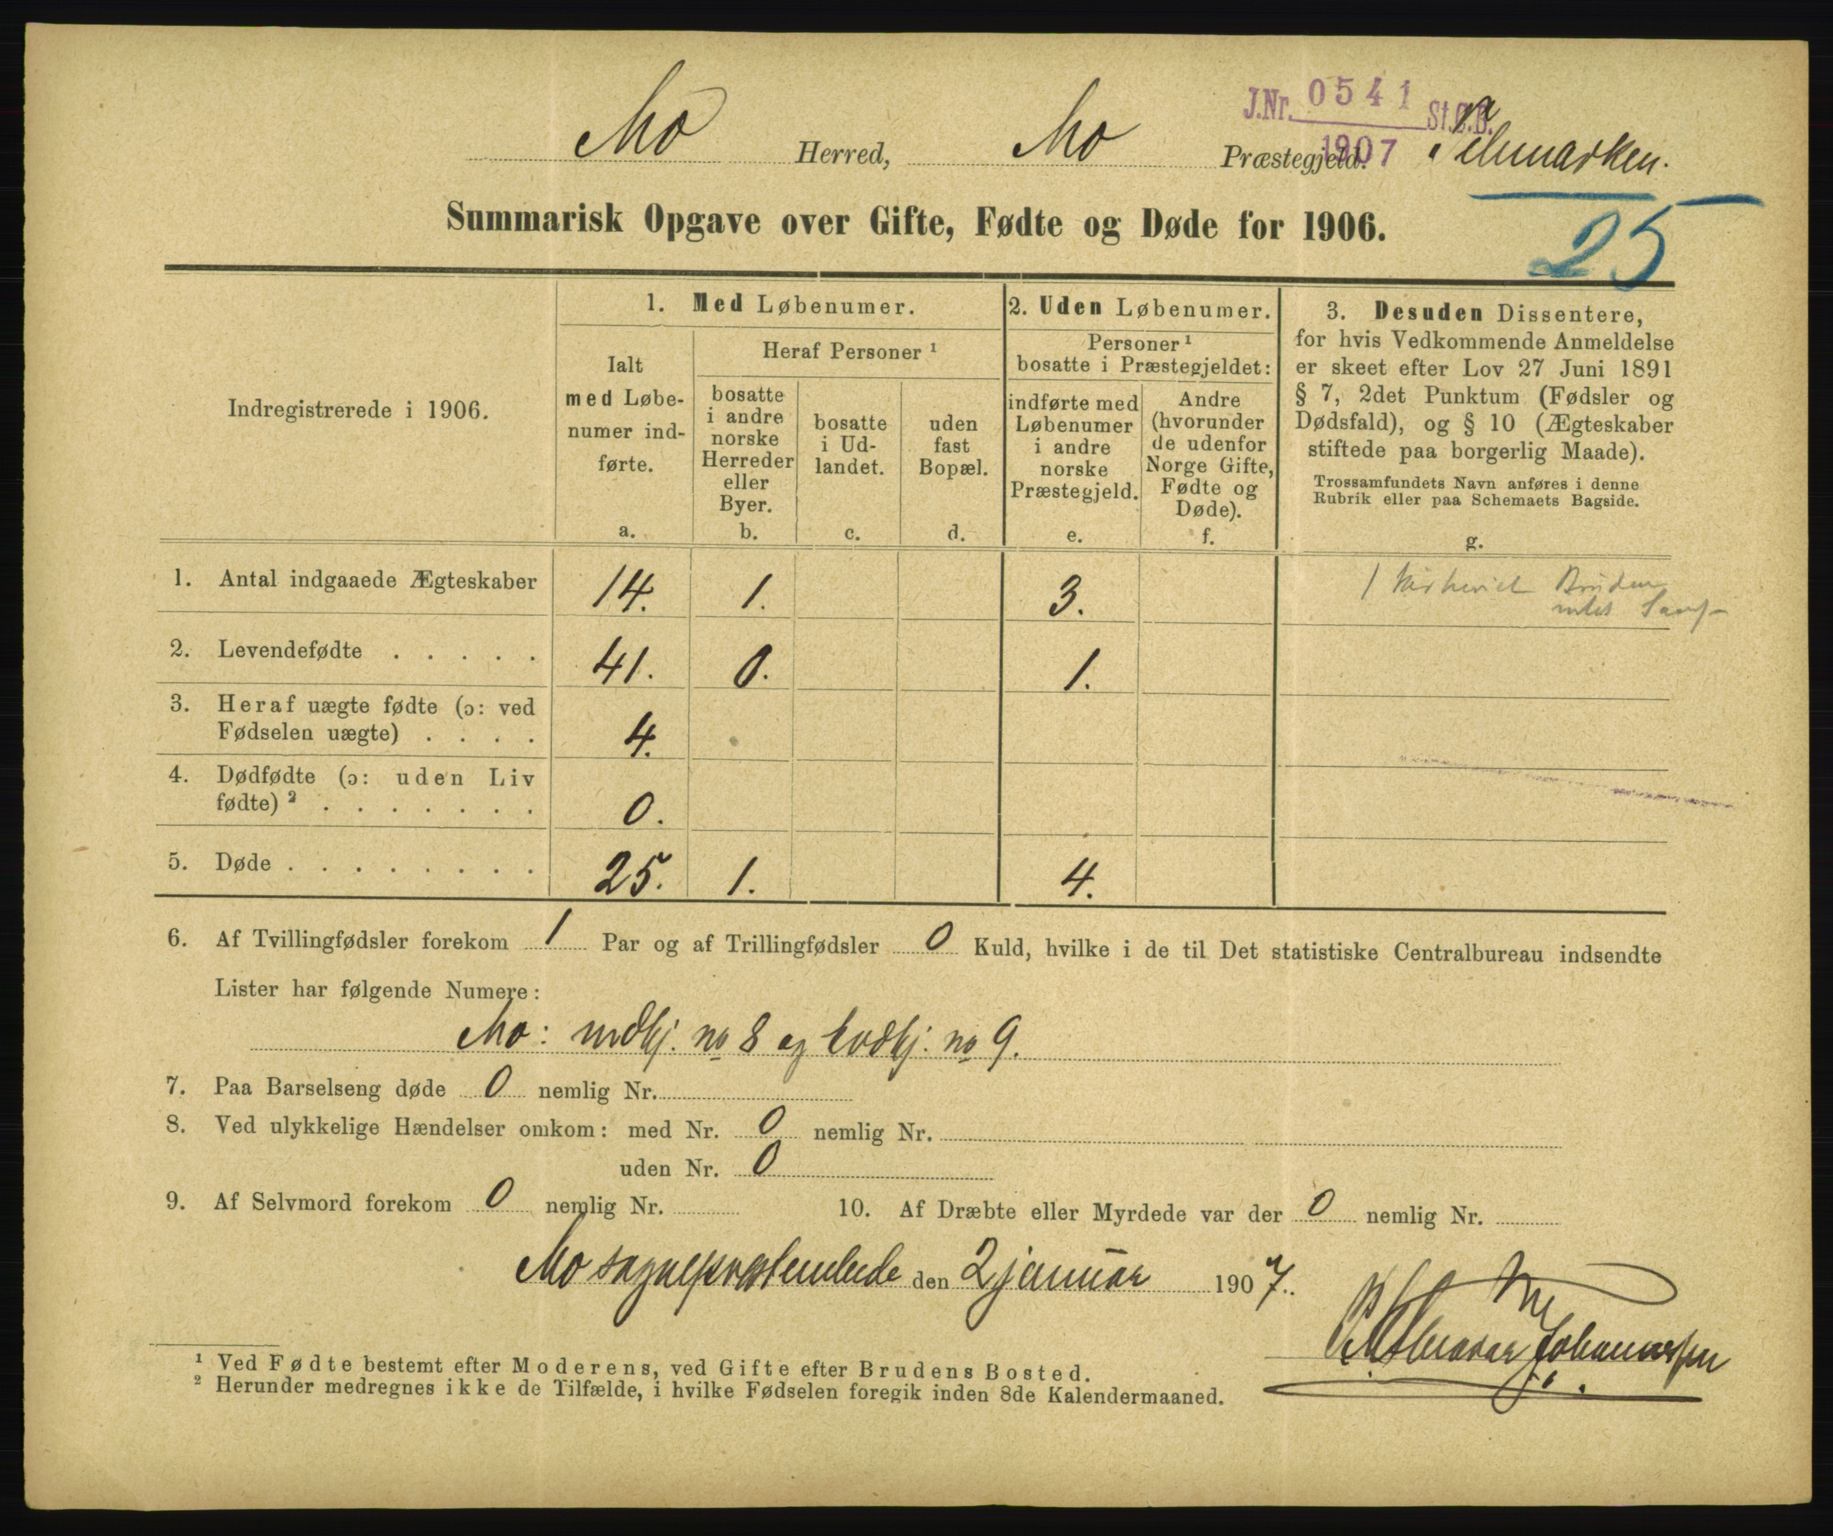 J.Nr. 0541 St.C.B.
1907
Mo Herred, Mo Præstegjeld. Telemarken.
Summarisk Opgave over Gifte, Fødte og Døde for 1906.
25
Indregistrerede i 1906.
1. Med Løbenumer.
Ialt
med Løbe-
numer ind-
førte.
a.
Heraf Personer ¹
bosatte
i andre
norske
Herreder
eller
Byer.
b.
bosatte
i Ud-
landet.
c.
uden
fast
Bopæl.
d.
2. Uden Løbenumer.
Personer ¹
bosatte i Præstegjeldet:
indførte med
Løbenumer
i andre
norske
Præstegjeld.
e.
Andre
(hvorunder
de udenfor
Norge Gifte,
Fødte og
Døde).
f.
3. Desuden Dissentere,
for hvis Vedkommende Anmeldelse
er skeet efter Lov 27 Juni 1891
§ 7, 2det Punktum (Fødsler og
Dødsfald), og § 10 (Ægteskaber
stiftede paa borgerlig Maade).
Trossamfundets Navn anføres i denne
Rubrik eller paa Schemaets Bagside.
g.
1. Antal indgaaede Ægteskaber 14. 1. 3. 1 Bruden
2. Levendefødte . . . . . 41. 0. 1.
3. Heraf uægte fødte (ɔ: ved
Fødselen uægte) . . . . 4.
4. Dødfødte (ɔ: uden Liv
fødte) ² . . . . . . . 0.
5. Døde . . . . . . . . 25. 1. 4.
6. Af Tvillingfødsler forekom 1 Par og af Trillingfødsler 0 Kuld, hvilke i de til Det statistiske Centralbureau indsendte
Lister har følgende Numere:
Mo: mdkj. no 8 og kvdkj. no 9.
7. Paa Barselseng døde 0 nemlig Nr.
8. Ved ulykkelige Hændelser omkom: med Nr. 0 nemlig Nr.
uden Nr. 0
9. Af Selvmord forekom 0 nemlig Nr. 10. Af Dræbte eller Myrdede var der 0 nemlig Nr.
Mo sogneprestembede den 2 januar 1907.
Johannessen
¹ Ved Fødte bestemt efter Moderens, ved Gifte efter Brudens Bosted.
² Herunder medregnes ikke de Tilfælde, i hvilke Fødselen foregik inden 8de Kalendermaaned.